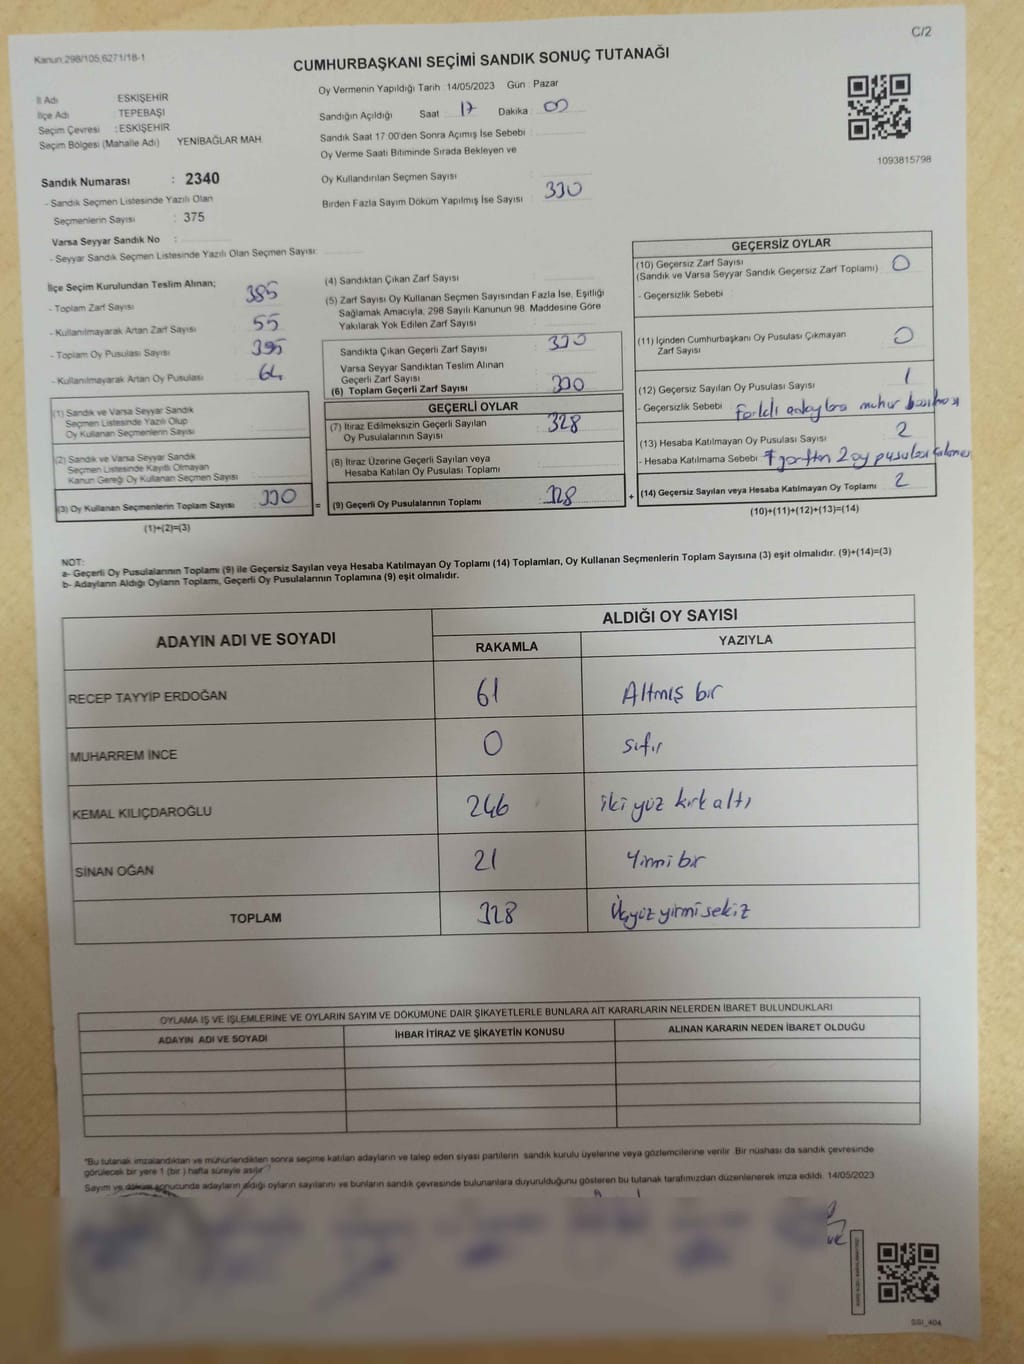 C/2
Kanun:298/105,6271/18-1
CUMHURBAŞKANI SEÇİMİ SANDIK SONUÇ TUTANAĞI
İl Adı ESKİŞEHİR
İlçe Adı TEPEBAŞI
Seçim Çevresi : ESKİŞEHİR
Seçim Bölgesi (Mahalle Adı) YENİBAĞLAR MAH.
Sandık Numarası : 2340
- Sandık Seçmen Listesinde Yazılı Olan
Seçmenlerin Sayısı : 375
Varsa Seyyar Sandık No :
- Seyyar Sandık Seçmen Listesinde Yazılı Olan Seçmen Sayısı:
Oy Vermenin Yapıldığı Tarih : 14/05/2023 Gün : Pazar
Sandığın Açıldığı Saat 17 Dakika 00
Sandık Saat 17:00'den Sonra Açımış İse Sebebi :
Oy Verme Saati Bitiminde Sırada Bekleyen ve
Oy Kullandırılan Seçmen Sayısı
Birden Fazla Sayım Döküm Yapılmış İse Sayısı : 330
1093815798
İlçe Seçim Kurulundan Teslim Alınan;
- Toplam Zarf Sayısı 385
- Kullanılmayarak Artan Zarf Sayısı 55
- Toplam Oy Pusulası Sayısı 395
- Kullanılmayarak Artan Oy Pusulası 64
(1) Sandık ve Varsa Seyyar Sandık
Seçmen Listesinde Yazılı Olup
Oy Kullanan Seçmenlerin Sayısı
(2) Sandık ve Varsa Seyyar Sandık
Seçmen Listesinde Kayıtlı Olmayan
Kanun Gereği Oy Kullanan Seçmen Sayısı
(3) Oy Kullanan Seçmenlerin Toplam Sayısı 330
(1)+(2)=(3)
(4) Sandıktan Çıkan Zarf Sayısı
(5) Zarf Sayısı Oy Kullanan Seçmen Sayısından Fazla İse, Eşitliği
Sağlamak Amacıyla, 298 Sayılı Kanunun 98. Maddesine Göre
Yakılarak Yok Edilen Zarf Sayısı
Sandıkta Çıkan Geçerli Zarf Sayısı : 330
Varsa Seyyar Sandıktan Teslim Alınan
Geçerli Zarf Sayısı
(6) Toplam Geçerli Zarf Sayısı 330
GEÇERLİ OYLAR
(7) İtiraz Edilmeksizin Geçerli Sayılan
Oy Pusulalarının Sayısı 328
(8) İtiraz Üzerine Geçerli Sayılan veya
Hesaba Katılan Oy Pusulası Toplamı
= (9) Geçerli Oy Pusulalarının Toplamı : 328
GEÇERSİZ OYLAR
(10) Geçersiz Zarf Sayısı
(Sandık ve Varsa Seyyar Sandık Geçersiz Zarf Toplamı) 0
- Geçersizlik Sebebi
(11) İçinden Cumhurbaşkanı Oy Pusulası Çıkmayan
Zarf Sayısı 0
(12) Geçersiz Sayılan Oy Pusulası Sayısı 1
- Geçersizlik Sebebi farklı adaylara mühür basılması
(13) Hesaba Katılmayan Oy Pusulası Sayısı 2
- Hesaba Katılmama Sebebi 2 oy pusulası
+ (14) Geçersiz Sayılan veya Hesaba Katılmayan Oy Toplamı 2
(10)+(11)+(12)+(13)=(14)
NOT:
a- Geçerli Oy Pusulalarının Toplamı (9) ile Geçersiz Sayılan veya Hesaba Katılmayan Oy Toplamı (14) Toplamları, Oy Kullanan Seçmenlerin Toplam Sayısına (3) eşit olmalıdır. (9)+(14)=(3)
b- Adayların Aldığı Oyların Toplamı, Geçerli Oy Pusulalarının Toplamına (9) eşit olmalıdır.
ADAYIN ADI VE SOYADI ALDIĞI OY SAYISI
RAKAMLA YAZIYLA
RECEP TAYYİP ERDOĞAN 61 Altmış bir
MUHARREM İNCE 0 sıfır
KEMAL KILIÇDAROĞLU 246 iki yüz kırk altı
SİNAN OĞAN 21 Yirmi bir
TOPLAM 328 Üçyüz yirmi sekiz
OYLAMA İŞ VE İŞLEMLERİNE VE OYLARIN SAYIM VE DÖKÜMÜNE DAİR ŞİKAYETLERLE BUNLARA AİT KARARLARIN NELERDEN İBARET BULUNDUKLARI
ADAYIN ADI VE SOYADI İHBAR İTİRAZ VE ŞİKAYETİN KONUSU ALINAN KARARIN NEDEN İBARET OLDUĞU
"Bu tutanak imzalandıktan ve mühürlendikten sonra seçime katılan adayların ve talep eden siyasi partilerin sandık kurulu üyelerine veya gözlemcilerine verilir. Bir nüshası da sandık çevresinde
görülecek bir yere 1 (bir ) hafta süreyle asılır."
Sayım ve döküm sonucunda adayların aldığı oyların sayılarını ve bunların sandık çevresinde bulunanlara duyurulduğunu gösteren bu tutanak tarafımızdan düzenlenerek imza edildi. 14/05/2023
SGI_404